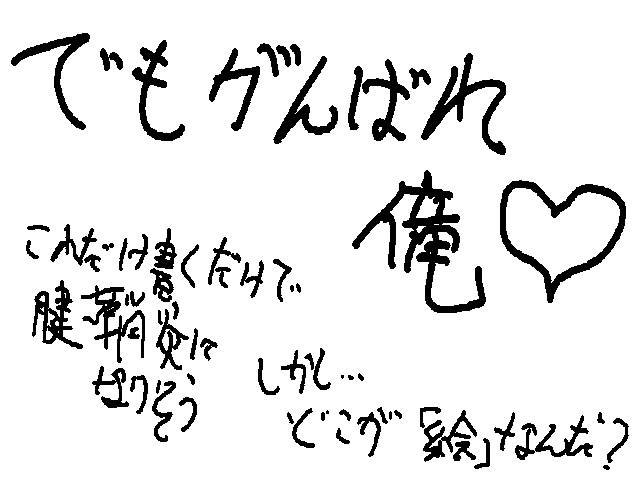 でもがんばれ
俺♡
これだけ書くだけで
腱鞘炎に
なりそう
しかし…
どこが「絵」なんだ?